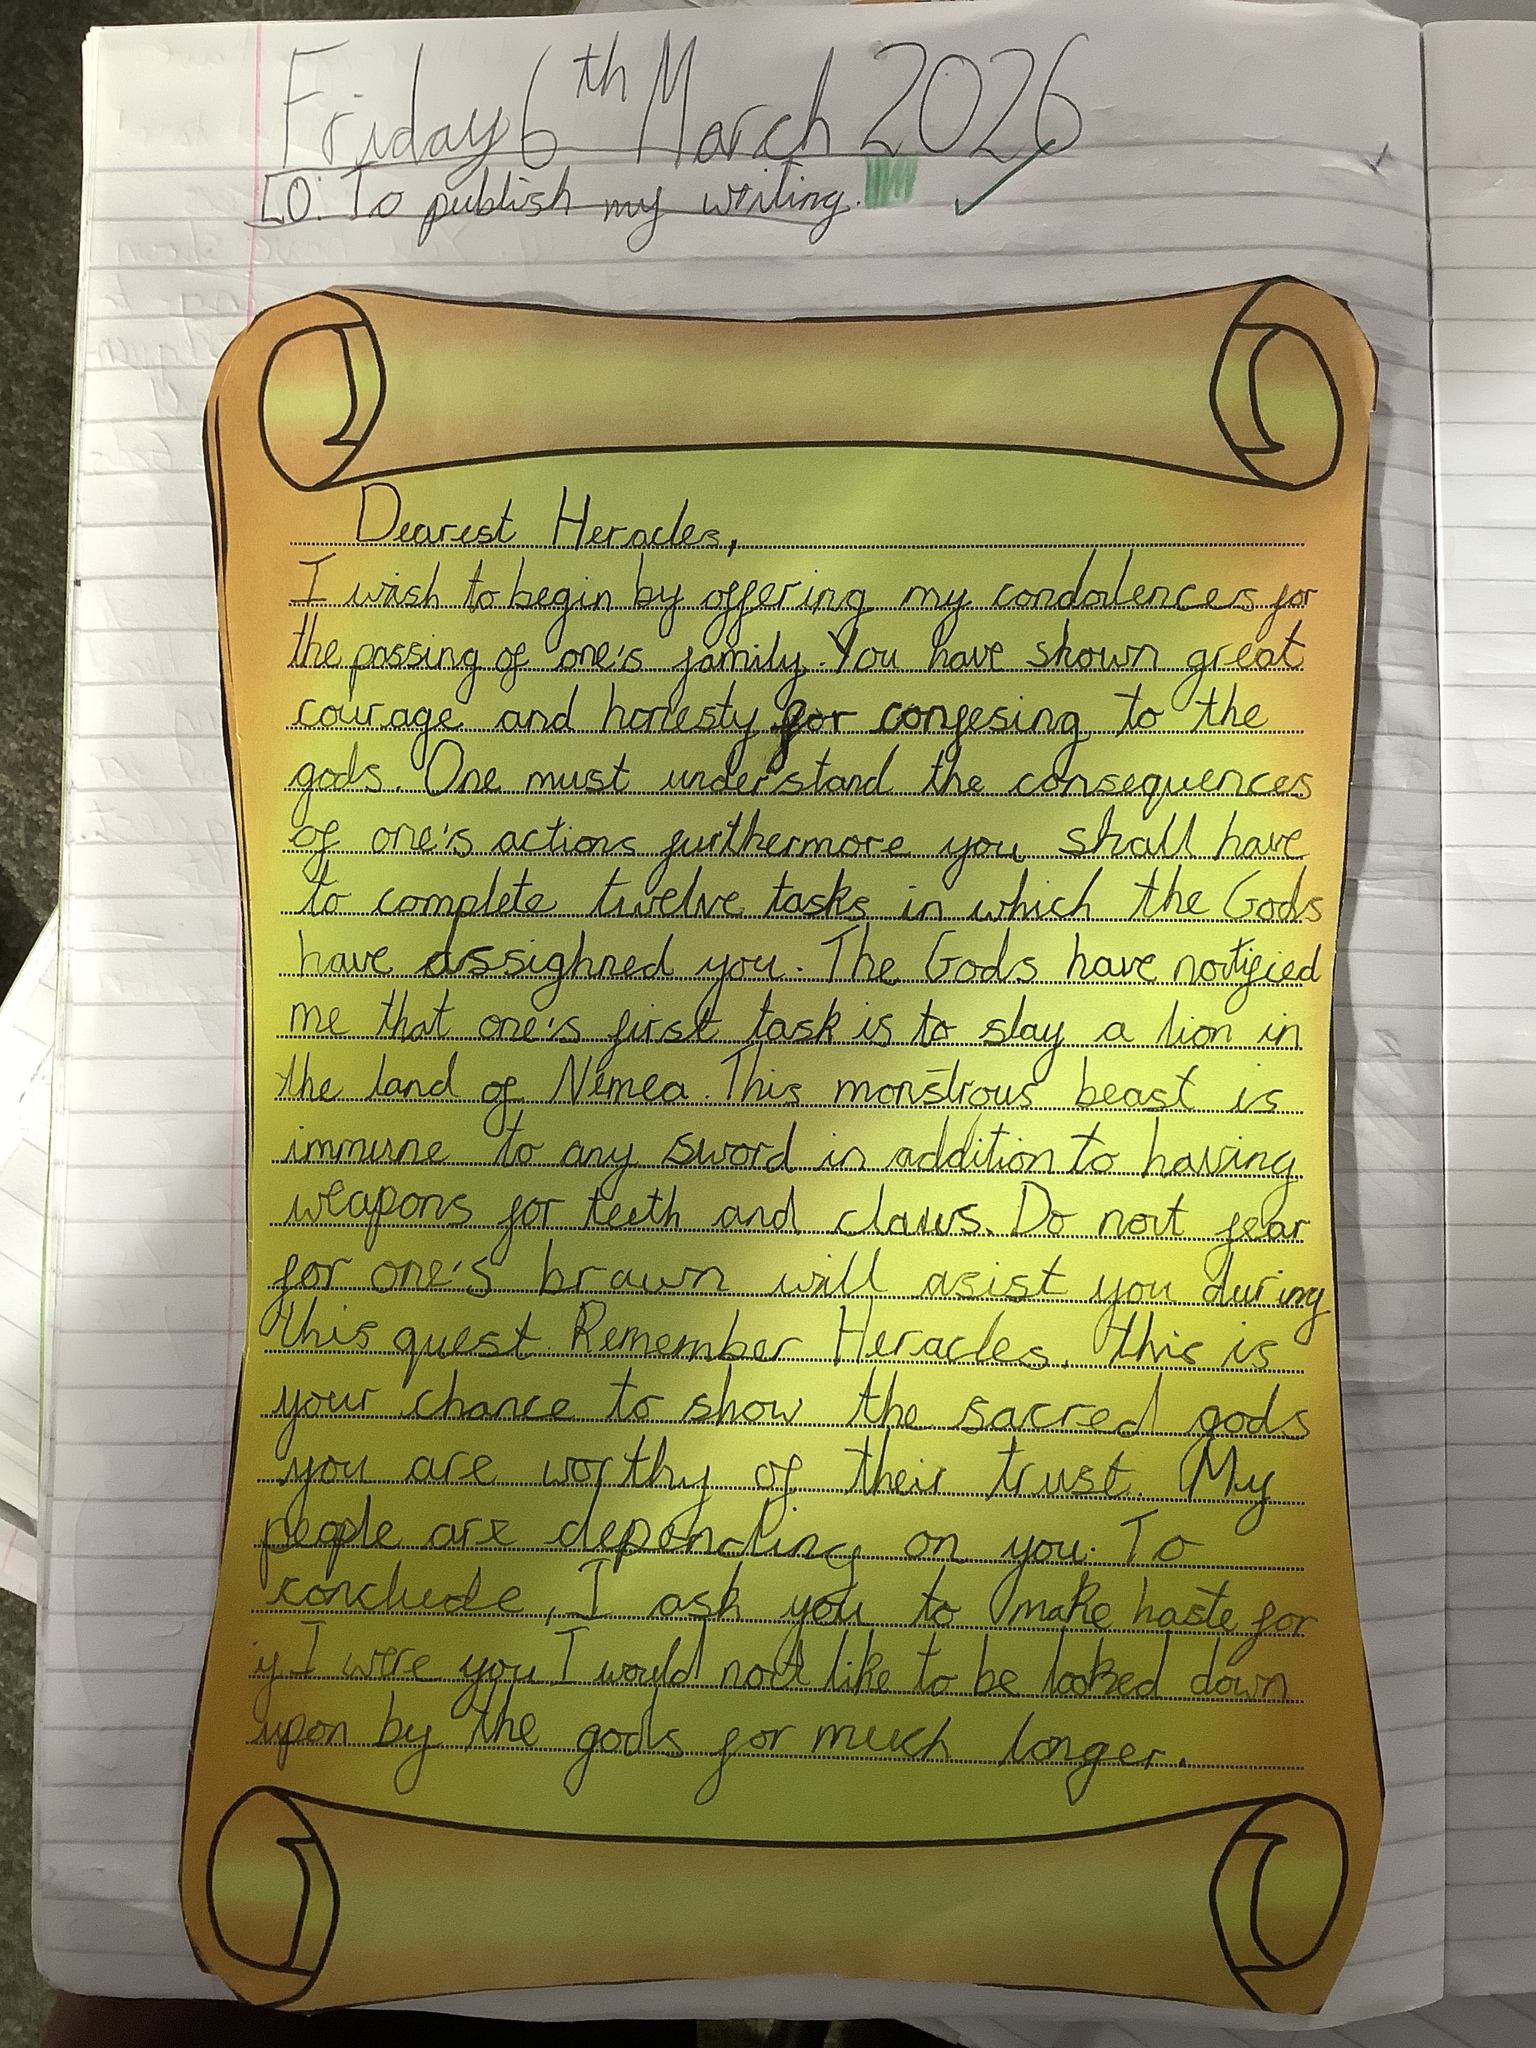 Friday 6th March 2026
LO: To publish my writing.
Dearest Heracles,
I wish to begin by offering my condolences for
the passing of one's family. You have shown great
courage and honesty for confesing to the
gods. One must understand the consequences
of one's actions furthermore you shall have
to complete twelve tasks in which the Gods
have assighned you. The Gods have notified
me that one's first task is to slay a lion in
the land of Nemea. This monstrous beast is
immune to any sword in addition to having
weapons for teeth and claws. Do not fear
for one's brawn will asist you during
this quest. Remember Heracles, this is
your chance to show the sacred gods
you are worthy of their trust. My
people are depending on you. To
conclude, I ask you to make haste for
if I were you I would not like to be looked down
upon by the gods for much longer.